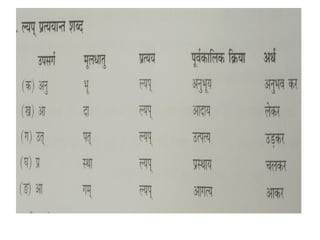 . ल्यप् प्रत्ययान्त शब्द
उपसर्ग मूलधातु प्रत्यय पूर्वकालिक क्रिया अर्थ
(क) अनु भू ल्यप् अनुभूय अनुभव कर
(ख) आ दा ल्यप् आदाय लेकर
(ग) उत् पत् ल्यप् उत्पत्य उड़कर
(घ) प्र स्था ल्यप् प्रस्थाय चलकर
(ङ) आ गम् ल्यप् आगत्य आकर